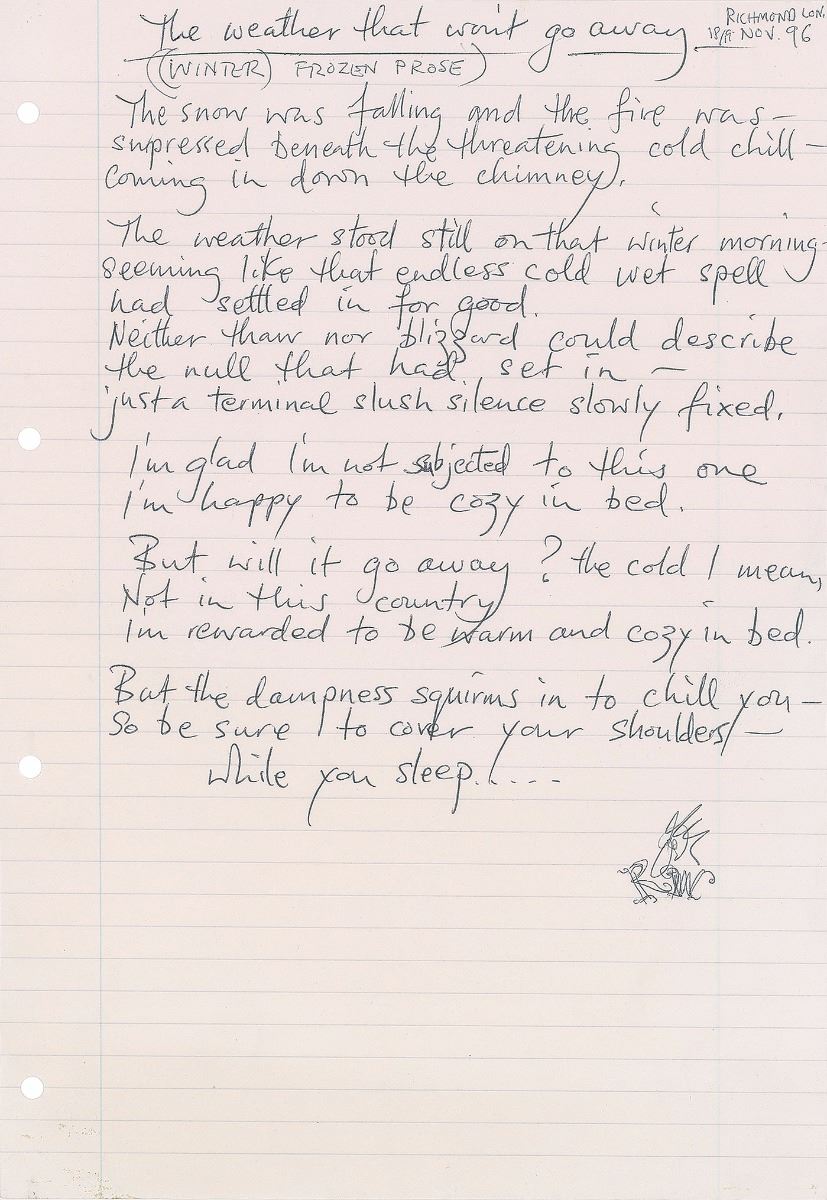 The weather that won't go away
RICHMOND LON.
18/19 NOV. 96
((WINTER) FROZEN PROSE)
The snow was falling and the fire was —
supressed beneath the threatening cold chill —
coming in down the chimney.
The weather stood still on that winter morning —
seeming like that endless cold wet spell
had settled in for good.
Neither thaw nor blizzard could describe
the null that had set in —
just a terminal slush silence slowly fixed.
I'm glad I'm not subjected to this one
I'm happy to be cozy in bed.
But will it go away? the cold I mean,
Not in this country
I'm rewarded to be warm and cozy in bed.
But the dampness squirms in to chill you —
So be sure to cover your shoulders —
while you sleep!....